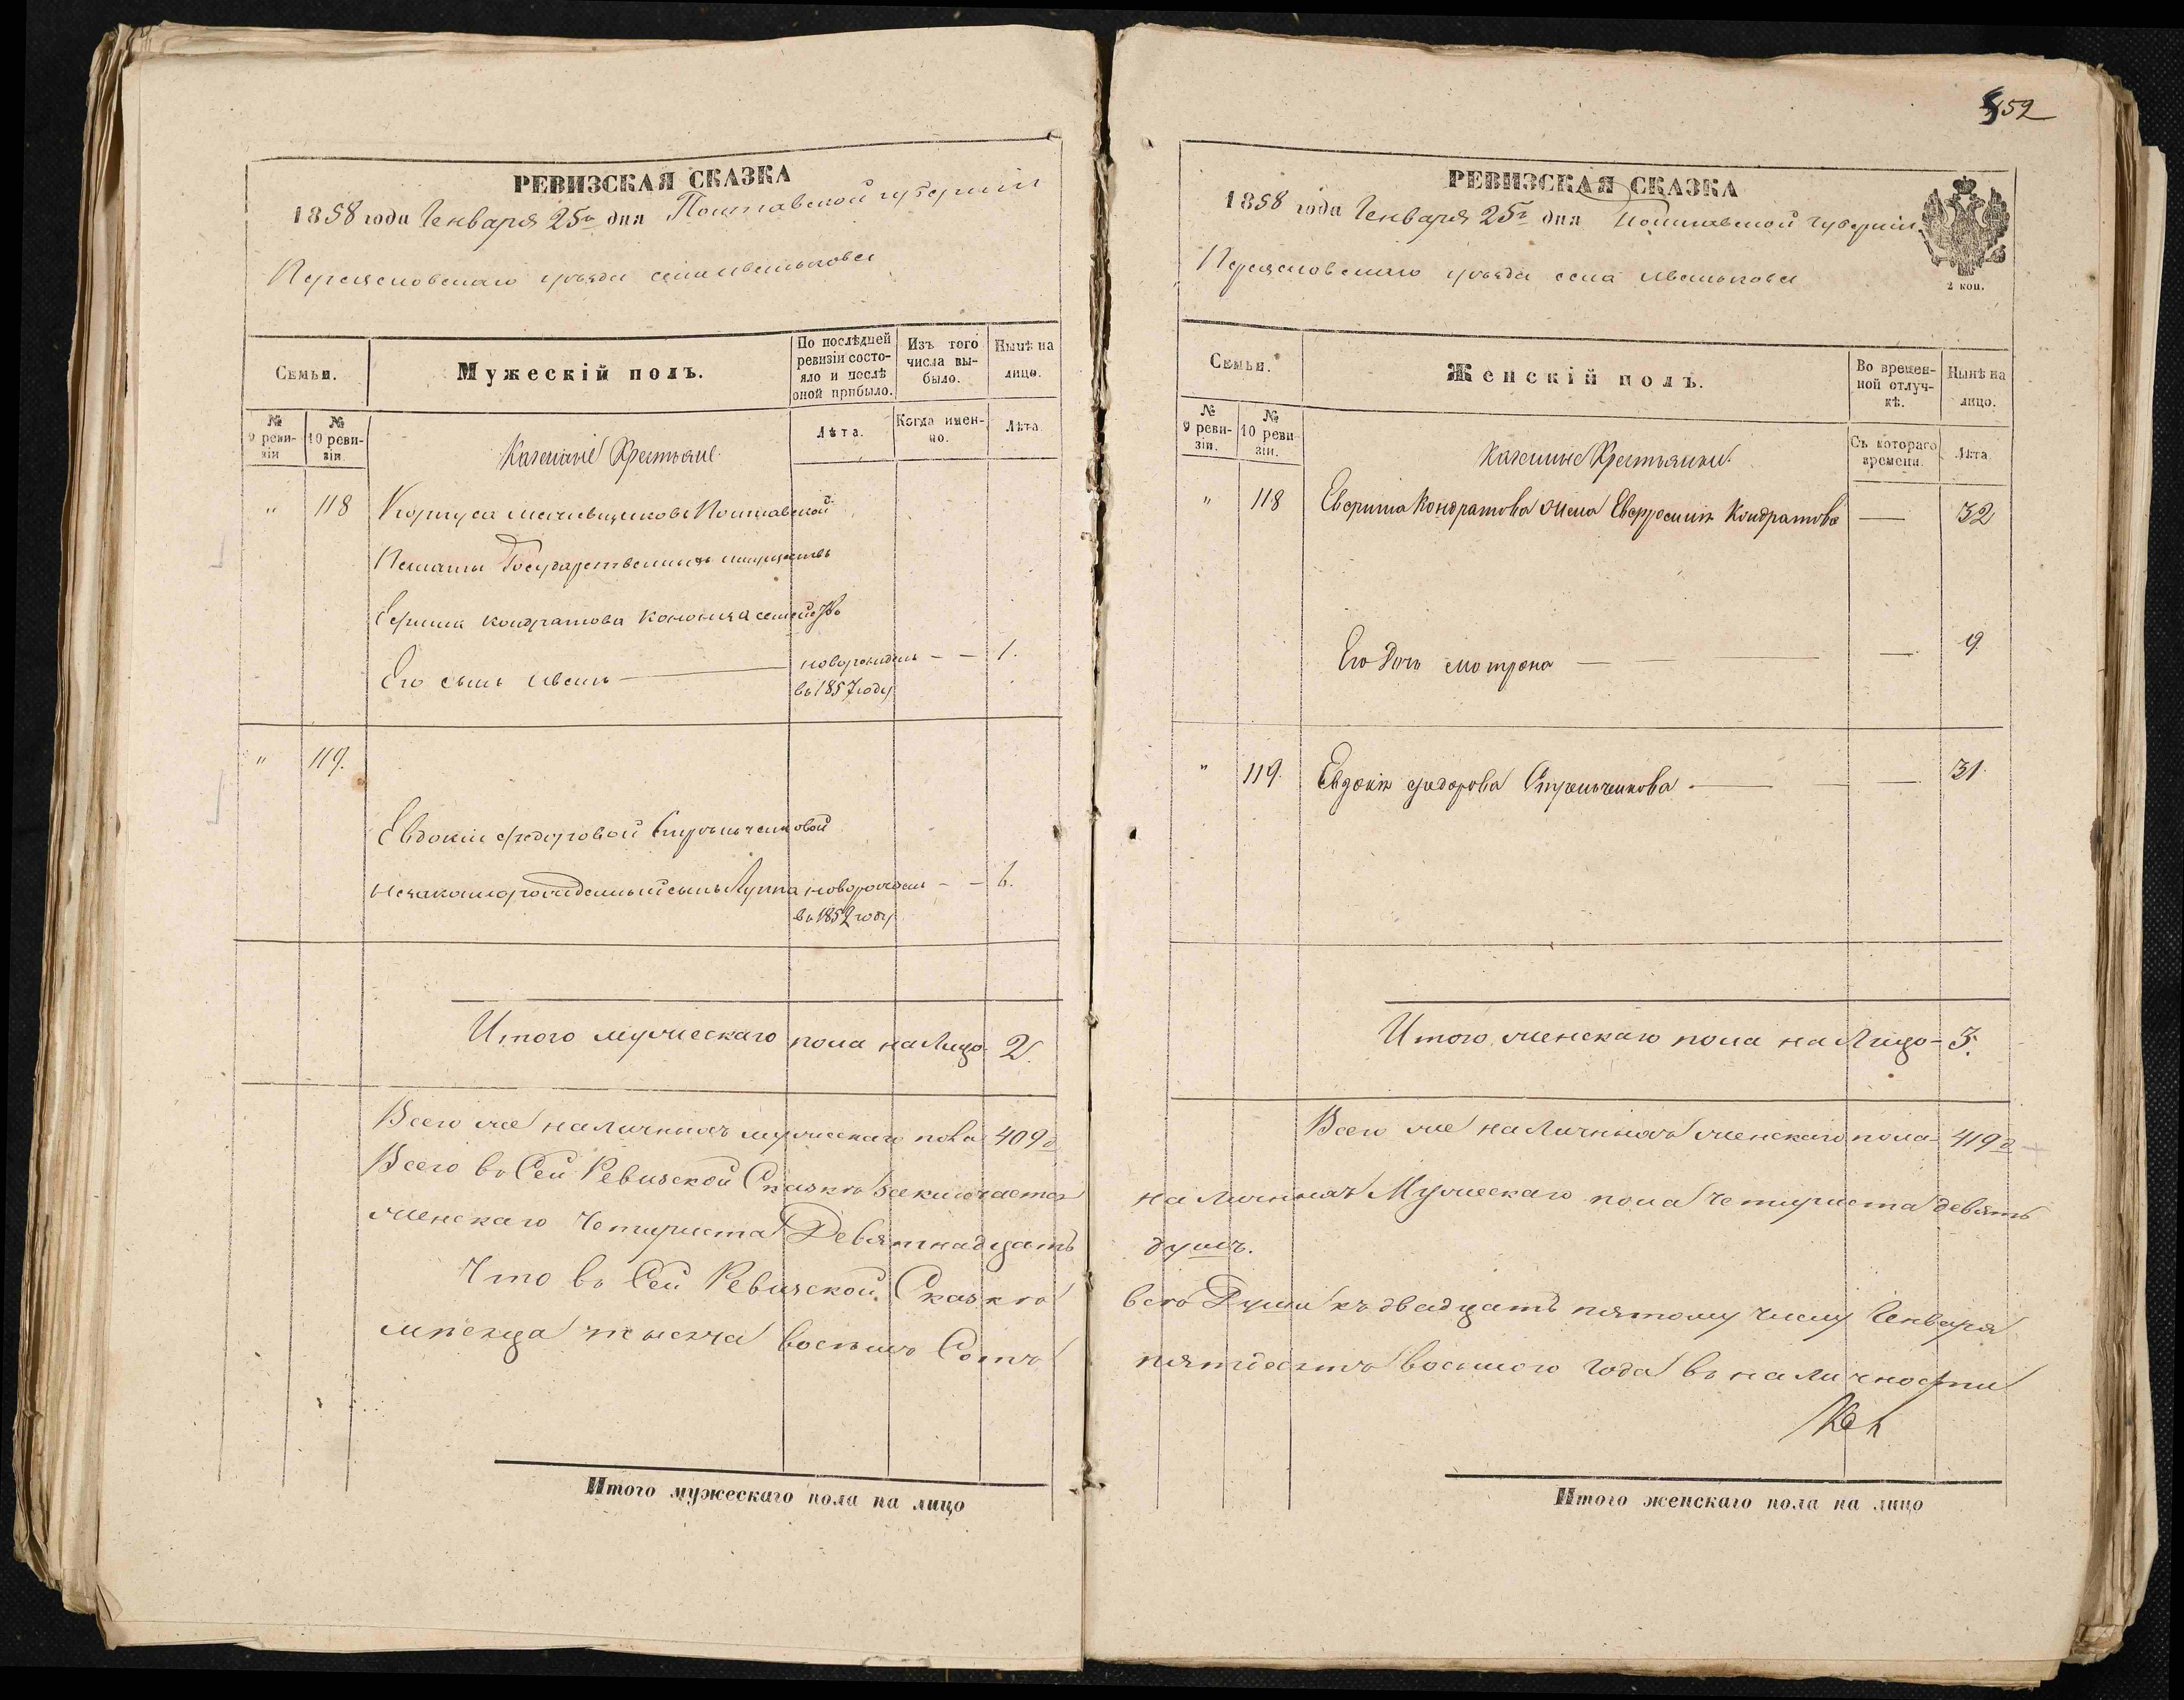 РЕВИЗСКАЯ СКАЗКА
1858 года Генваря 25го дня Полтавской губернии
Переясловскаго уѣзда села Иванькова
Семьи.
Мужескій полъ.
По послѣдней ревизіи состояло и послѣ оной прибыло.
Изъ того числа выбыло.
Нынѣ на лицо.
№ 9 ревизіи
№ 10 ревизіи.
Казенные Крестьяне.
Лѣта.
Когда именно.
Лѣта
" 118 Корпуса Полтавской
Палаты Государственныхъ имуществъ
Кондратова семейство
Его сынъ Иванъ — новорожденъ — — 1.
въ 1857 году
" 119.
Евдокіи Федоровой Стрельчениковой
незаконнорожденный сынъ Луппа новорожденъ — — 6.
въ 1852 году
Итого мужескаго пола на Лицо 2.
Всего же наличныхъ мужескаго пола 409 д
Всего въ Сей Ревизской Сказкѣ заключается
женскаго Четыриста Девятнадцать
Что въ Сей Ревизской Сказкѣ
мѣсяца тысяча восемь Сотъ
Итого мужескаго пола на лицо
152
РЕВИЗСКАЯ СКАЗКА
1858 года Генваря 25го дня Полтавской губерніи
Переясловскаго уѣзда села Иванькова
2 коп.
Семьи.
Женскій полъ.
Во временной отлучкѣ.
Нынѣ на лицо.
№ 9 ревизіи.
№ 10 ревизіи.
Казенные Крестьянки.
Съ котораго времени.
Лѣта
" 118 Кондратова жена Евфросинія Кондратова — 32
Его Дочь Мотрона — — — — 9.
" 119. Евдокія Федорова Стрельченкова — — — 31.
Итого женскаго пола на Лицо - 3.
Всего же наличныхъ женскаго пола 419 д
наличныхъ Мужескаго пола Четыриста девять
душъ.
всѣ Души къ двадцать пятому числу Генваря
пятдесятъ восьмого Года въ наличности
Итого женскаго пола на лицо